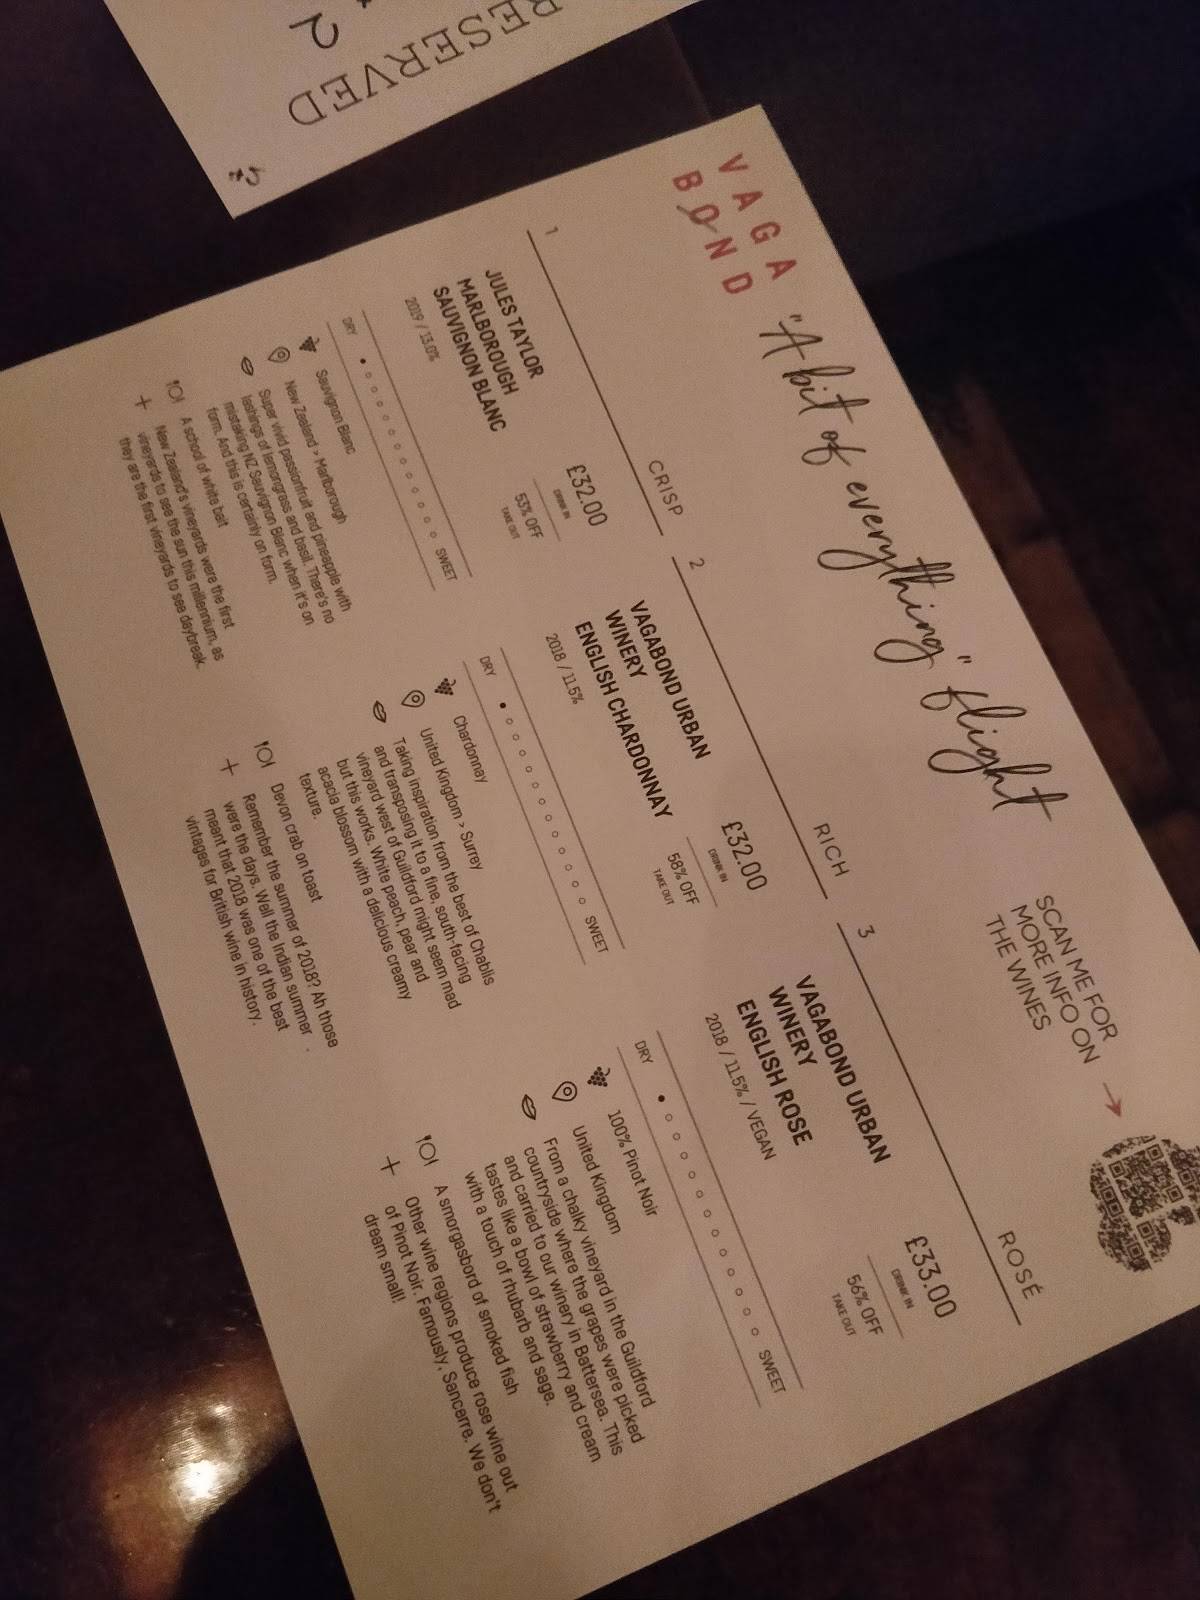 RESERVED
2
VAGA
BOND
"A bit of everything" flight
SCAN ME FOR
MORE INFO ON
THE WINES
1
CRISP
JULES TAYLOR
MARLBOROUGH
SAUVIGNON BLANC
2019 / 13.0%
£32.00
DRINK IN
53% OFF
TAKE OUT
DRY
SWEET
Sauvignon Blanc
New Zealand > Marlborough
Super vivid passionfruit and pineapple with
lashings of lemongrass and basil. There's no
mistaking NZ Sauvignon Blanc when it's on
form. And this is certainly on form.
A school of white bait
New Zealand's vineyards were the first
vineyards to see the sun this millennium, as
they are the first vineyards to see daybreak.
2
RICH
VAGABOND URBAN
WINERY
ENGLISH CHARDONNAY
2018 / 11.5%
£32.00
DRINK IN
58% OFF
TAKE OUT
DRY
SWEET
Chardonnay
United Kingdom > Surrey
Taking inspiration from the best of Chablis
and transposing it to a fine, south-facing
vineyard west of Guildford might seem mad
but this works. White peach, pear and
acacia blossom with a delicious creamy
texture.
Devon crab on toast
Remember the summer of 2018? Ah those
were the days. Well the Indian summer
meant that 2018 was one of the best
vintages for British wine in history.
3
ROSÉ
VAGABOND URBAN
WINERY
ENGLISH ROSE
2018 / 11.5% / VEGAN
£33.00
DRINK IN
56% OFF
TAKE OUT
DRY
SWEET
100% Pinot Noir
United Kingdom
From a chalky vineyard in the Guildford
countryside where the grapes were picked
and carried to our winery in Battersea. This
tastes like a bowl of strawberry and cream
with a touch of rhubarb and sage.
A smorgasbord of smoked fish
Other wine regions produce rose wine out
of Pinot Noir. Famously, Sancerre. We don't
dream small!